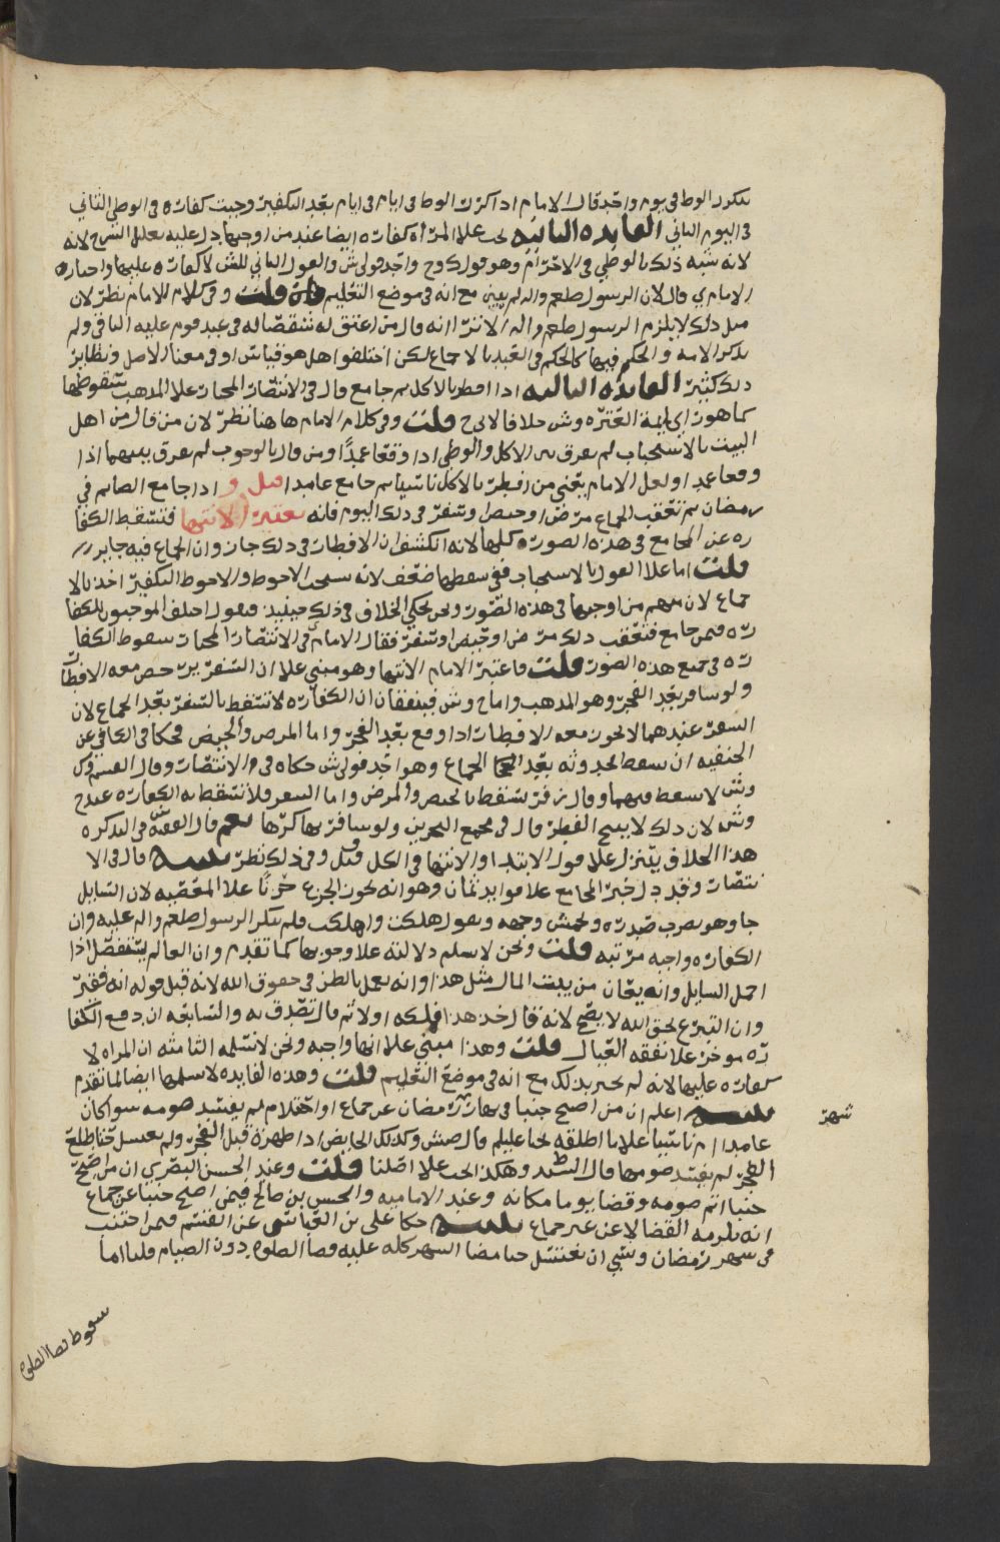 تكرر الوطي في يوم واحد قال الامام اذا كرر الوطي في ايام في ايام بعد التكفير وجبت كفارة في الوطي الثاني
في اليوم الثاني الفايده الثانيه تجب على المراه كفاره ايضا عند من اوجبها دل عليه تعليل الشرح لانه
لانه شبه ذلك بالوطي في الاحرام وهو قول ك وح واحد قولي ش والقول الثاني للش لا كفاره عليها واختاره
الامام ي قال لان الرسول صلعم واله لم يبين مع انه في موضع التعليم قلت وفي كلام الامام نظر لان
مثل ذلك لا يلزم الرسول صلعم واله الا ترا انه قال من اعتق له شقصا له في عبد قوم عليه الباقي ولم
يذكر الامه والحكم فيها كالحكم في العبد بالاجماع لكن اختلفوا هل هو قياس او في معنا الاصل ونظاير
ذلك كثير الفائده الثالثه اذا افطر بالاكل ثم جامع قال في الانتصار المختار على المذهب سقوطها
كما هو راي ايمة العتره وش خلافا لابي ح قلت وفي كلام الامام هاهنا نظر لان من قال من اهل
البيت بالاستحباب لم يفرق بين الاكل والوطي اذا وقعا عمدا ومن قال بالوجوب لم يفرق بينهما اذا
وقعا عمدا ولعل الامام يعني من افطر بالاكل ناسيا ثم جامع عامدا قيل و اذا جامع الصايم في
رمضان ثم تعقب الجماع مرض او حيض او سفر في ذلك اليوم فانه يعتبر الانتها فتسقط الكفا
ره عن المجامع في هذه الصوره كلها لانه انكشف ان الافطار في ذلك جاز وان الجماع فيه جايز
قلت اما على القول بالاستحباب ففي سقطها ضعف لانه يستحب الاحوط والاحوط التكفير اخذ بالا
جماع لان منهم من اوجبها في هذه الصور ونحن نحكي الخلاف في ذلك حينيذ فنقول اختلف الموجبون للكفا
ره فيمن جامع فتعقب ذلك مرض او حيض او سفر فقال الامام في الانتصار المختار سقوط الكفا
ره في جميع هذه الصور قلت فاعتبر الامام الانتها وهو مبني على ان السفر يرخص معه الافطار
ولو سافر بعد الفجر وهو المذهب واما ح وش فيتفقان ان الكفاره لا تسقط بالسفر بعد الجماع لان
السفر عندهما لا يجوز معه الافطار اذا وقع بعد الفجر واما المرض والحيض فحكا في الكافي عن
الحنفيه ان يسقط لحدوثه بعد الجماع وهو احد قولي ش حكاه في الانتصار وقال القسم وك
وش لا يسقط فيهما وقال زفر تسقط بالحيض والمرض واما السفر فلا تسقط به الكفاره عند ح
وش لان ذلك لا يبيح الفطر قال في مجمع البحرين ولو سافر بها كرها نعم قال الفقيه س في التذكره
هذا الخلاف يتنزل على قول الابتدا والانتها في الكل قيل وفي ذلك نظر تنبيه قال في الا
نتصار وقد دل خبر المجامع على فوايد ثمان وهو انه يجوز الجزع حزنا على المعصيه لان السايل
جا وهو يضرب صدره ويخمش وجهه ويقول هلكت واهلكت فلم ينكر الرسول صلعم واله عليه وان
الكفاره واجبه مرتبه قلت ونحن لا نسلم دلالته على وجوبها كما تقدم وان العالم يستفصل اذا
اجمل السايل وانه يعان من بيت المال مثل هذا وانه يعمل بالظن في حقوق الله لانه قبل قوله انه فقير
وان التبرع بحق الله لا يصح لانه قال خذ هذا فملكه اولا ثم قال تصدق به والسابعه ان دفع الكفا
ره موخر على نفقه العيال قلت وهذا مبني على انها واجبه ونحن لا نسلمه الثامنه ان المراه لا
كفاره عليها لانه لم يخبر بذلك مع انه في موضع التعليم قلت وهذه الفايده لا نسلمها ايضا لما تقدم
تنبيه اعلم ان من اصبح جنبا في نهار رمضان عن جماع او احتلام لم يفسد صومه سوا كان
شهر
عامدا ام ناسيا على ما اطلقه يحيا عليلم قال ص ش وكذلك الحايض اذا طهرت قبل الفجر ولم تغتسل حتا طلع
الفجر لم يفسد صومها قال السيد وهكذا يجب على اصلنا قلت وعند الحسن البصري ان من اصبح
جنبا اتم صومه وقضا يوما مكانه وعند الاماميه والحسن بن صالح فيمن اصبح جنبا عن جماع
انه يلزمه القضا لا عن غير جماع تنبيه حكا علي بن العباس عن القسم فيمن اجتنب
في شهر رمضان ونسي ان يغتسل حتا مضا الشهر كله عليه قضا الصلوه دون الصيام قلنا اما
سقوط قضا الصلوه